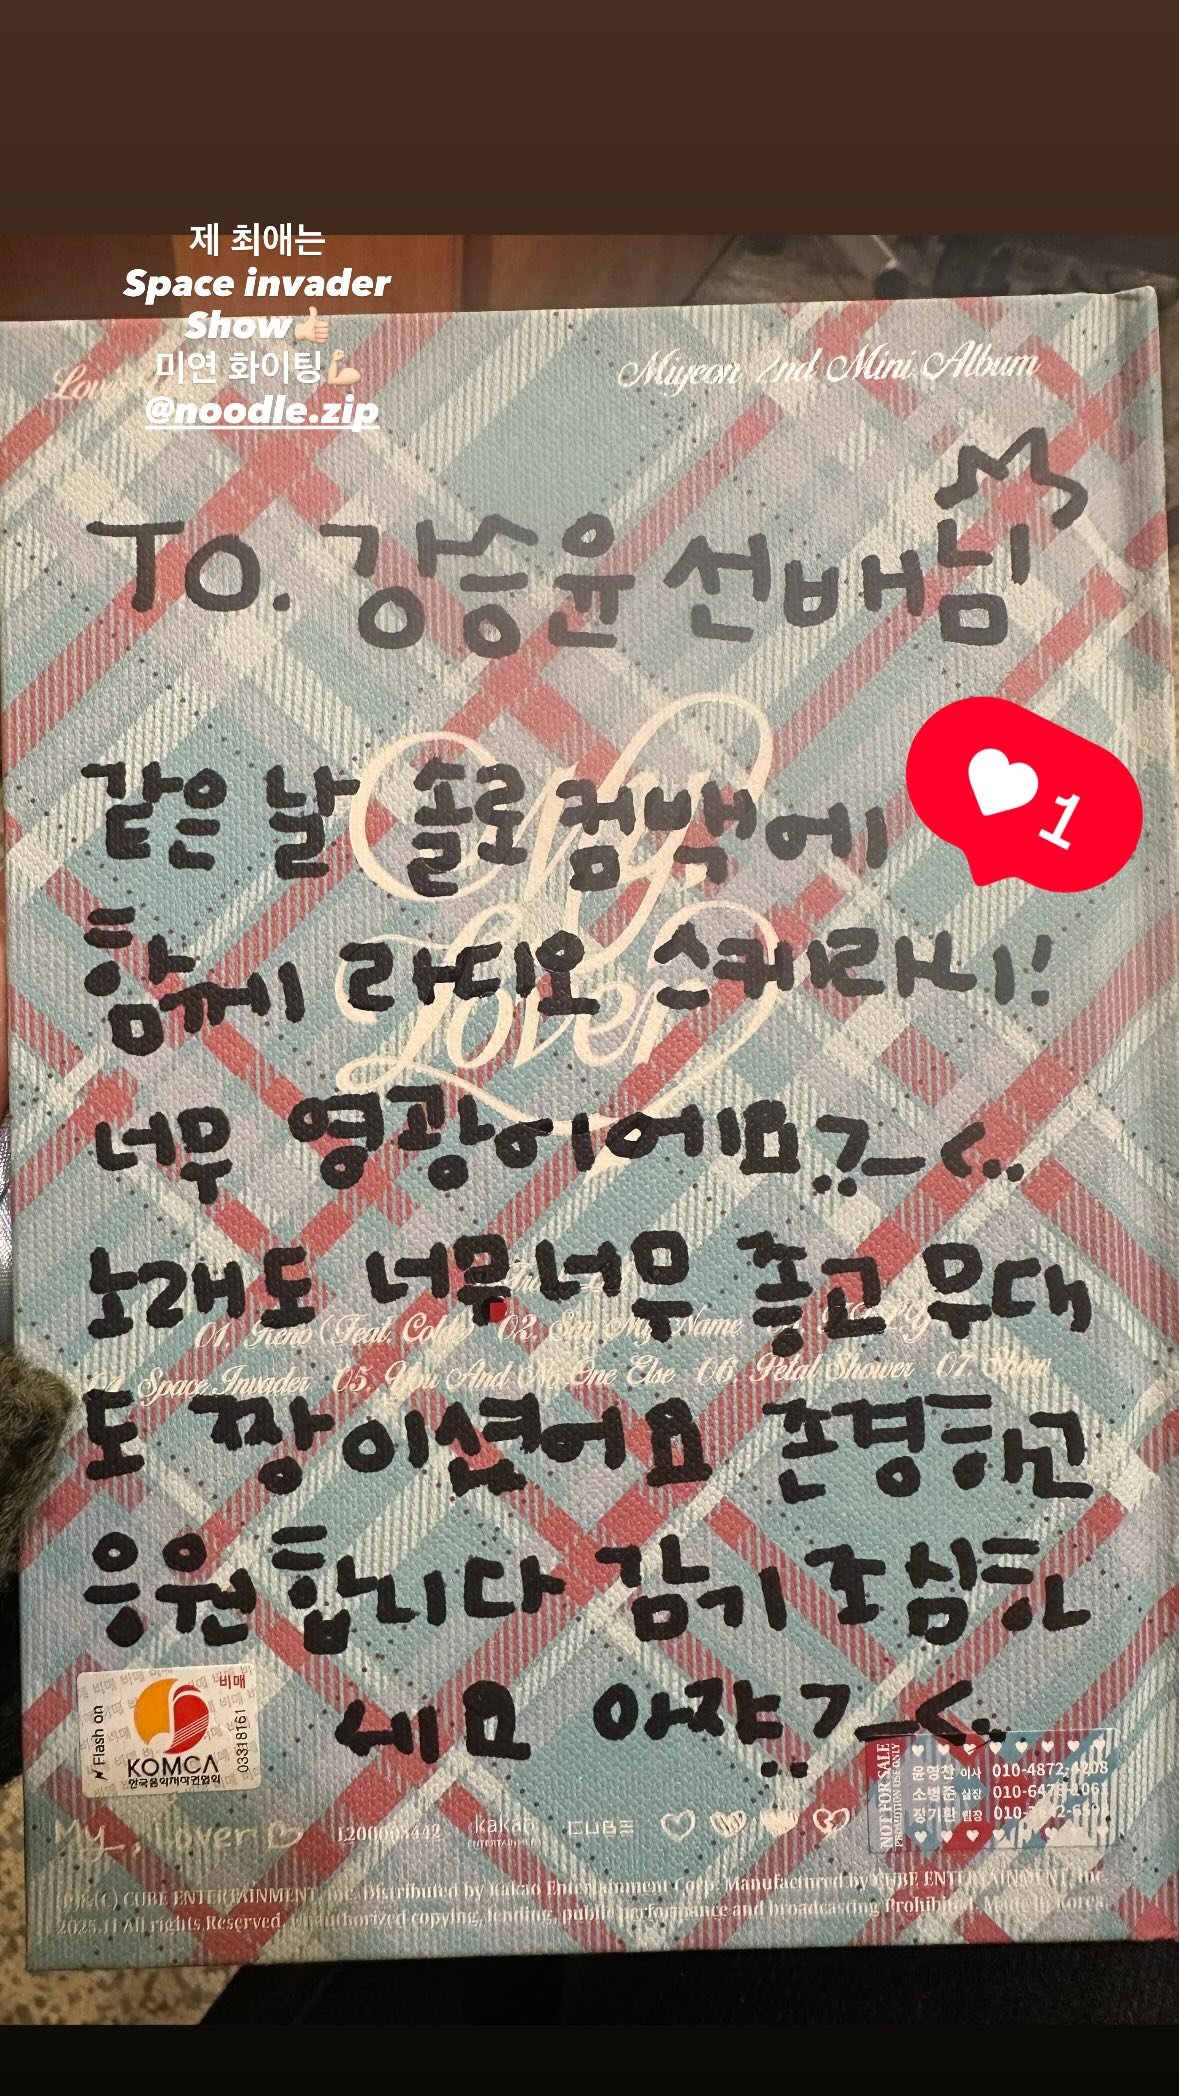 제 최애는
Space invader
Show👍🏻
미연 화이팅💪🏻
@noodle.zip
Miyeon 2nd Mini Album
TO. 강승윤 선배님
같은 날 솔로컴백에
1
함께 라디오 스케라니!
너무 영광이에요?_<..
My,
Lover
노래도 너무너무 좋고 무대
01. Reno (Feat. Colde) 02. Say My Name
04. Space Invader 05. You And No One Else 06. Petal Shower 07. Show
도 짱이셨어요 존경하고
응원합니다 감기 조심하
세요 아쨔?_<..
Flash on
비매
KOMCA
한국음악저작권협회
03318161
NOT FOR SALE
PROMOTION USE ONLY
윤영찬 이사 010-4872-4208
소병준 실장
장기환 팀장
My, Lover
L200003442
kakao
ENTERTAINMENT
CUBE
(P)&(C) CUBE ENTERTAINMENT, Inc. Distributed by Kakao Entertainment Corp. Manufactured by CUBE ENTERTAINMENT, Inc.
2025.11 All rights Reserved. Unauthorized copying, lending, public performance and broadcasting Prohibited. Made in Korea.